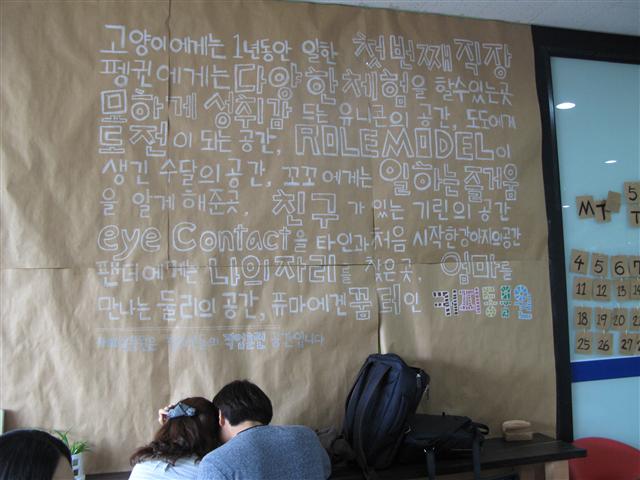 고양이에게는 1년동안 일한 첫번째직장
펭귄에게는 다양한체험을 할수있는곳
묘하게 성취감 드는 유니콘의 공간, 도도에게
도전이 되는 공간, ROLE MODEL이
생긴 수달의 공간, 꼬꼬에게는 일하는즐거움
을 알게 해준곳, 친구가 있는 기린의 공간
eye Contact을 타인과 처음 시작한강아지의공간
팬더에게는 나의자리를 찾은곳, 엄마를
만나는 둘리의 공간, 퓨마에겐꿈터인 커피동물원
공간입니다
MT
5
T
4 5 6 7
11 12 13 14
18 19 20 21
25 26 27